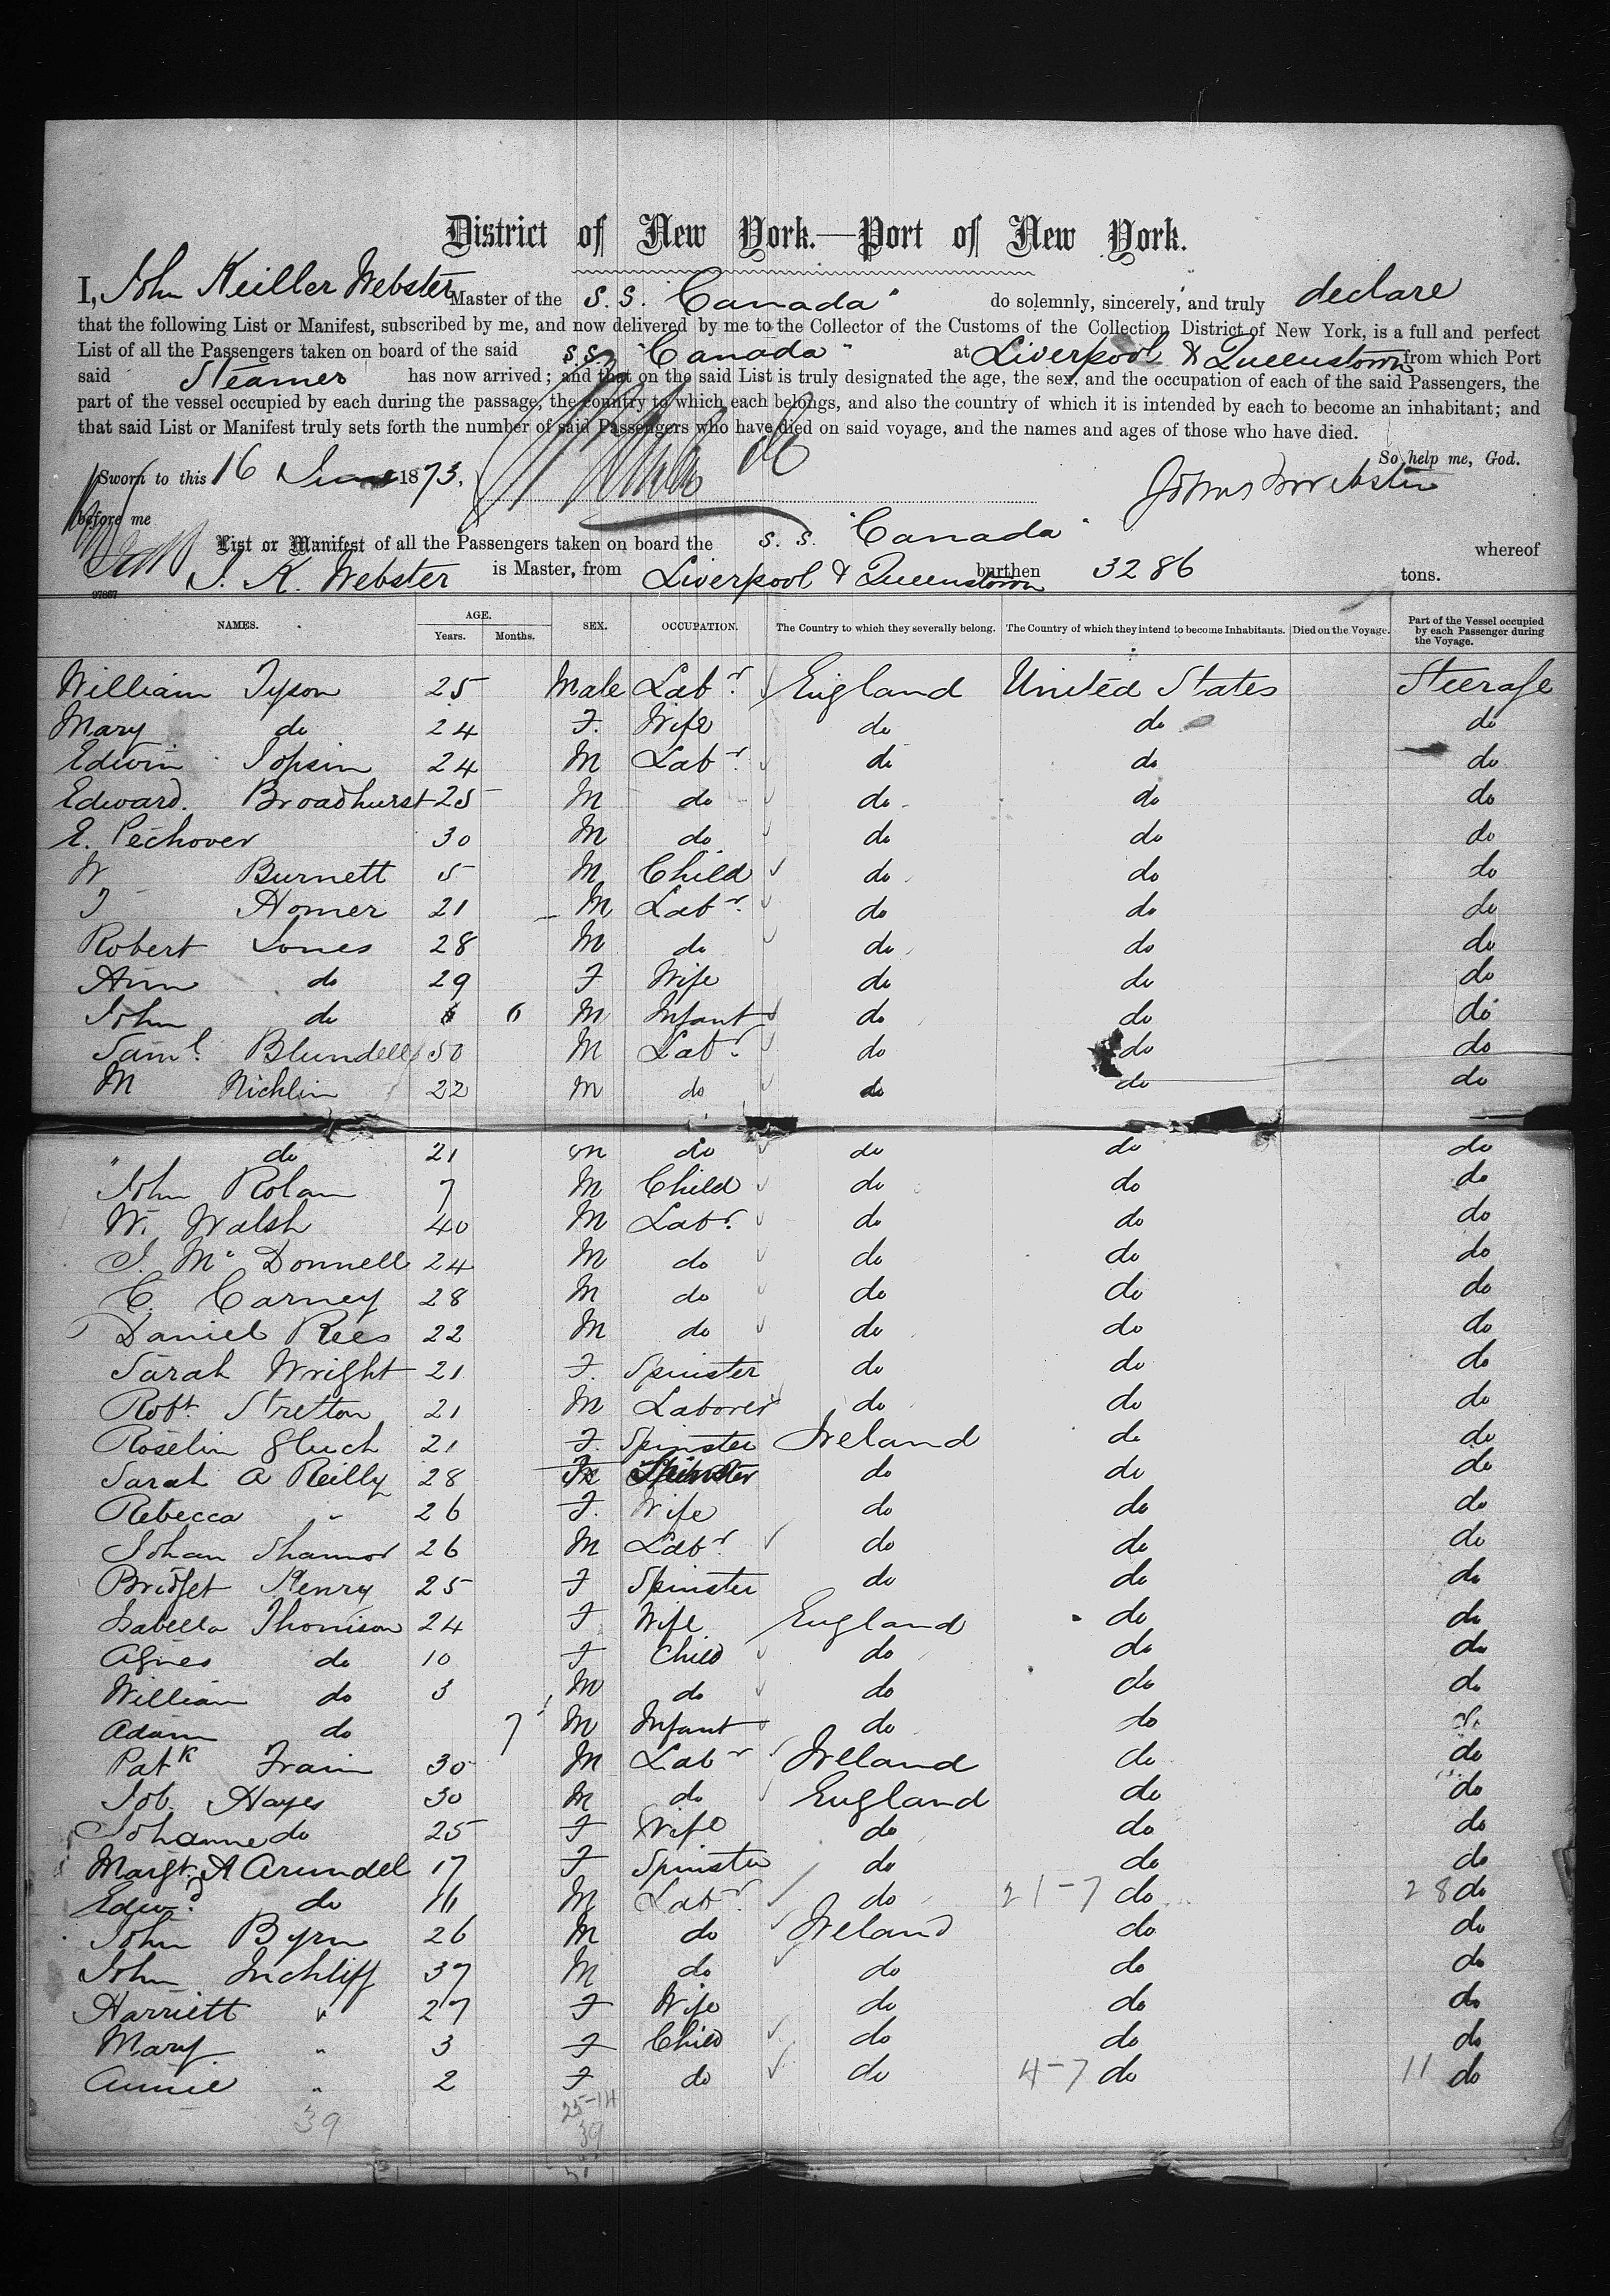 District of New York.—Port of New York.
I, John Keiller Webster Master of the S. S. "Canada" do solemnly, sincerely, and truly declare
that the following List or Manifest, subscribed by me, and now delivered by me to the Collector of the Customs of the Collection District of New York, is a full and perfect
List of all the Passengers taken on board of the said S.S. "Canada" at Liverpool & Queenstown from which Port
said Steamer has now arrived; and that on the said List is truly designated the age, the sex, and the occupation of each of the said Passengers, the
part of the vessel occupied by each during the passage, the country to which each belongs, and also the country of which it is intended by each to become an inhabitant; and
that said List or Manifest truly sets forth the number of said Passengers who have died on said voyage, and the names and ages of those who have died.
So help me, God.
Sworn to this 16 June 1873.
before me
List or Manifest of all the Passengers taken on board the S. S. "Canada" whereof
J. K. Webster is Master, from Liverpool & Queenstown burthen 3286 tons.
97867
NAMES. AGE. Years. Months. SEX. OCCUPATION. The Country to which they severally belong. The Country of which they intend to become Inhabitants. Died on the Voyage. Part of the Vessel occupied by each Passenger during the Voyage.
William Tyson 25 Male Labr. England United States Steerage
Mary do 24 F. Wife do do do
Edwin Jopsin 24 M Labr. do do do
Edward. Broadhurst 25 M do do do do
E. Pechover 30 M do do do do
W Burnett 5 M Child do do do
J Homer 21 M Labr. do do do
Robert Jones 28 M do do do do
Ann do 29 F Wife do do do
John do 6 M Infant do do do
Saml. Blundell 50 M Labr. do do do
M Nichlin 22 M do do do do
" do 21 M do do do do
John Rolan 7 M Child do do do
W. Walsh 40 M Labr. do do do
J. Mc Donnell 24 M do do do do
C. Carney 28 M do do do do
Daniel Rees 22 M do do do do
Sarah Wright 21 F. Spinster do do do
Robt. Stretton 21 M Laborer do do do
Roselin Gluch 21 F. Spinster Ireland do do
Sarah A Reilly 28 Spinster do do do
Rebecca " 26 F. Wife do do do
Johan Shannon 26 M Labr. do do do
Bridget Henry 25 F Spinster do do do
Isabella Thomison 24 F Wife England do do
Agnes do 10 F Child do do do
William do 3 M do do do do
Adam do 7 M Infant do do do
Patk Frain 30 M Labr Ireland do do
Job. Hayes 30 M do England do do
Johanne do 25 F Wife do do do
Margt. A Arundel 17 F Spinster do do do
Edwd. do 16 M Labr. do 21-7 do 28 do
John Byrn 26 M do Ireland do do
John Inchliff 37 M do do do do
Harriett " 27 F Wife do do do
Mary " 3 F Child do do do
Annie " 2 F do do 4-7 do 11 do
39 25-14
39